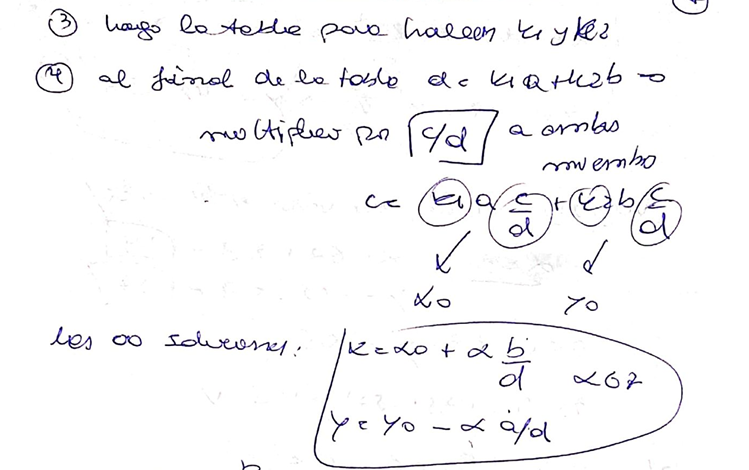 ③ hago la tabla para hallar k1 y k2
④ al final de la tabla d = k1a + k2b →
multiplico por c/d a ambos
miembro
c = k1 a c/d + k2 b c/d
x0 y0
les ∞ soluciones: x = x0 + α b/d α ∈ Z
y = y0 - α a/d